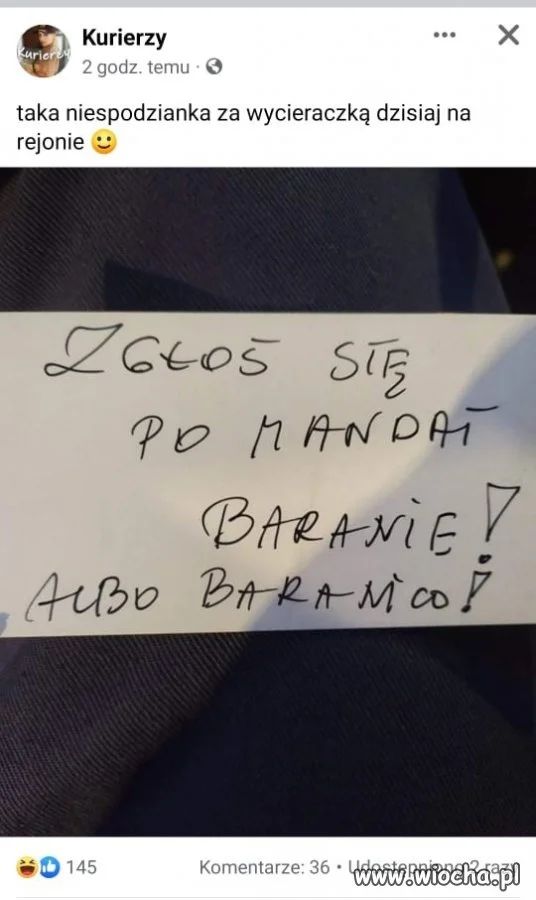 Kurierzy
2 godz. temu
taka niespodzianka za wycieraczką dzisiaj na
rejonie
ZGŁOŚ SIĘ
PO MANDAT
BARANIE!
ALBO BARANICO!
145
Komentarze: 36 • Udostępniono 2 razy
www.wiocha.pl